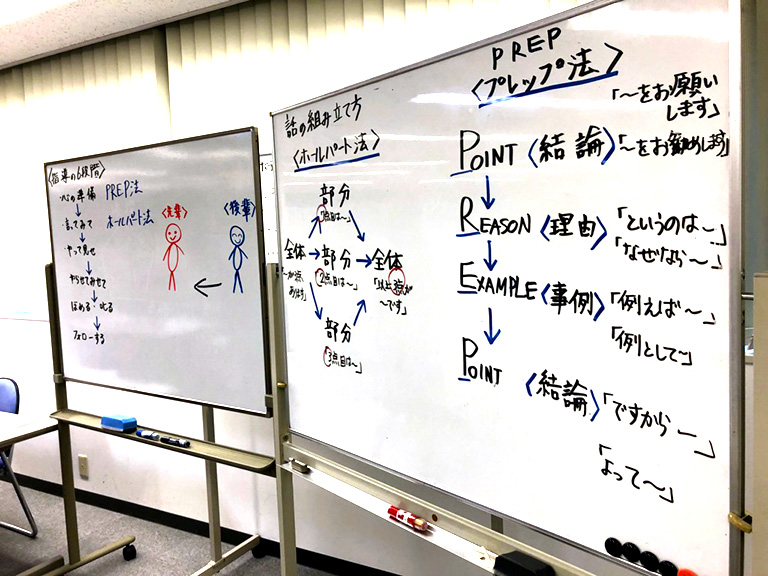 〈指導の6段階〉
心の準備
言ってみて
やって見せ
やらせてみせて
ほめる・叱る
フォローする
PREP法
ホールパート法
〈先輩〉
〈後輩〉
話の組み立て方
〈ホールパート法〉
部分
「1点目は〜」
全体
部分
「2点目は〜」
全体
部分
「3点目は〜」
PREP
〈プレップ法〉
「〜をお願い
します」
POINT〈結論〉「〜をお勧めします」
REASON〈理由〉「というのは〜」
「なぜなら〜」
EXAMPLE〈事例〉「例えば〜」
「例として〜」
POINT〈結論〉「ですから〜」
「よって〜」